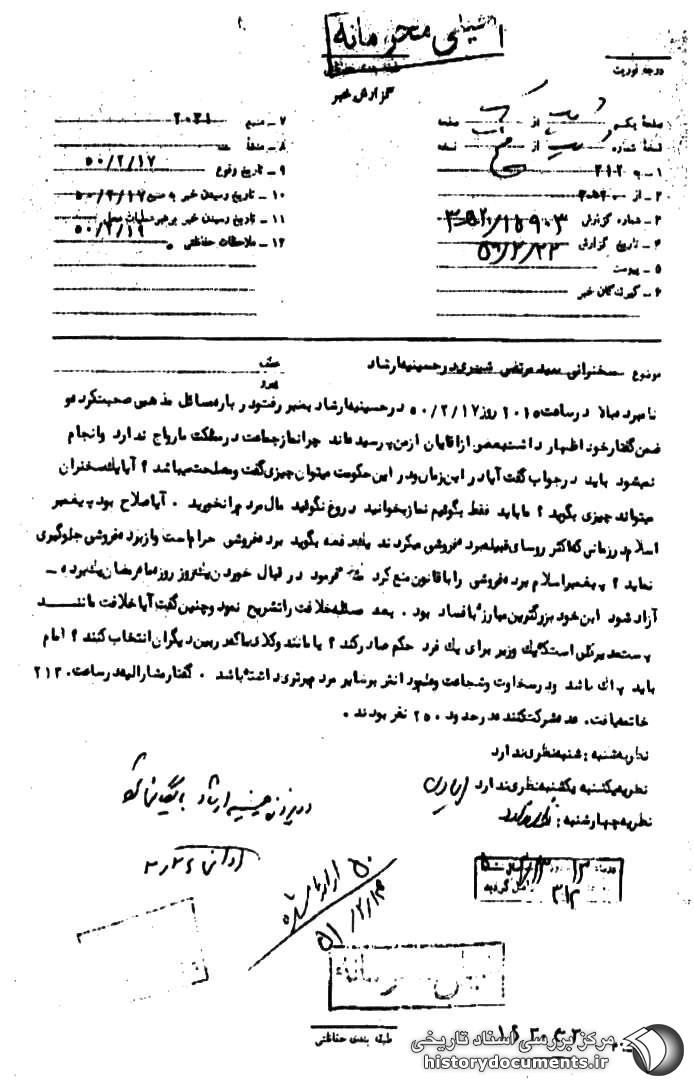 خیلی محرمانه
طبقه بندی حفاظتی
درجه فوریت
گزارش خبر
صفحه یکم از صفحه
نسخه شماره از نسخه
۱ ـ به ۳۱۲
۲ ـ از
۳ ـ شماره گزارش
۴ ـ تاریخ گزارش ۵۰/۲/۲۲
۵ ـ پیوست
۶ ـ گیرندگان خبر
۷ ـ منبع ۲۰۳۱
۸ ـ منشأ
۹ ـ تاریخ وقوع ۵۰/۲/۱۷
۱۰ ـ تاریخ رسیدن خبر به منبع ۵۰/۲/۱۷
۱۱ ـ تاریخ رسیدن خبر برهبر عملیات محل ۵۰/۲/۱۹
۱۲ ـ ملاحظات حفاظتی
موضوع سخنرانی سید مرتضی شبستری در حسینیه ارشاد
عطف
پیرو
نامبرده بالا در ساعت ۲۰۱۵ روز ۵۰/۲/۱۷ در حسینیه ارشاد بمنبر رفت و در باره مسائل مذهبی صحبت کرد و
ضمن گفتار خود اظهار داشت بعضی از آقایان از من پرسیده اند چرا نماز جماعت در مملکت ما رواج ندارد وانجام
نمیشود باید در جواب گفت آیا در این زمان و در این حکومت میتوان چیزی گفت و مصلحت میباشد ؟ آیا یک سخنران
میتواند چیزی بگوید ؟ ما باید فقط بگوئیم نماز بخوانید دروغ نگوئید مال مردم را نخورید . آیا صلاح بود پیغمبر
اسلام در زمانی که اکثر روسای قبیله برده فروشی میکردند یکدفعه بگوید برده فروشی حرام است و از برده فروشی جلوگیری
نماید ؟ پیغمبر اسلام برده فروشی را با قانون منع کرد فرمود در قبال خوردن یک روز روزه ماه رمضان یک برده ـ
آزاد شود این خود بزرگترین مبارزه با فساد بود . بعد مسئله خلافت را تشریح نمود و چنین گفت آیا خلافت مانند
پست مدیر کل است که یک وزیر برای یک فرد حکم صادر کند ؟ یا مانند وکلای ما که در بین دیگران انتخاب کنند ؟ امام
باید پاک باشد و در سخاوت و شجاعت و علم و دانش بر سایر مردم برتری داشته باشد . گفتار مشارالیه در ساعت ۲۱۳۰
خاتمه یافت . عده شرکت کننده در حدود ۲۵۰ نفر بودند .
نظریه شنبه : شنبه نظری ندارد
نظریه یکشنبه یکشنبه نظری ندارد
نظریه چهارشنبه :
در پرونده حسینیه ارشاد بایگانی شود
طبقه بندی حفاظتی
مرکز بررسی اسناد تاریخی
historydocuments.ir